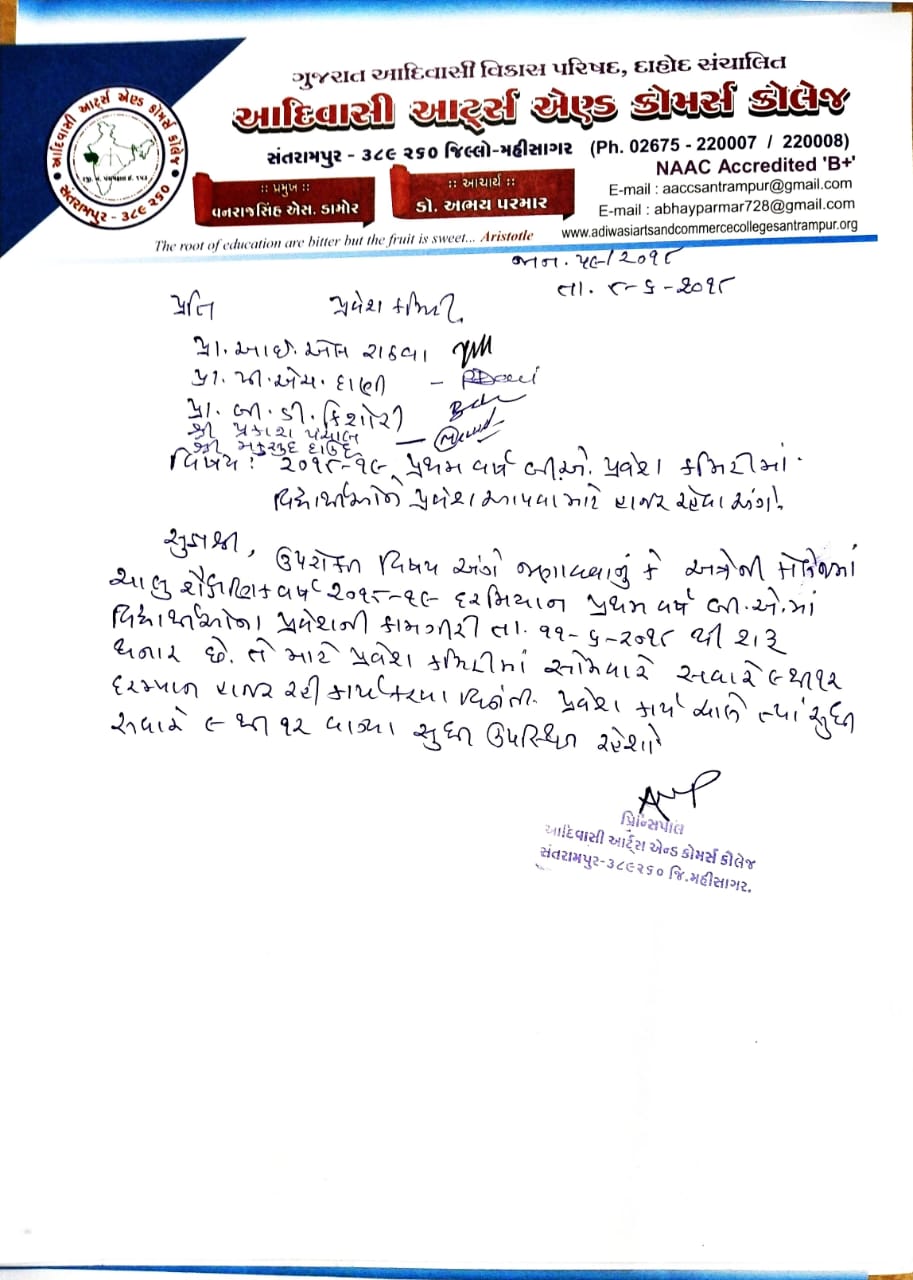 ગુજરાત આદિવાસી વિકાસ પરિષદ, દાહોદ સંચાલિત
આદિવાસી આર્ટ્સ એણ્ડ કોમર્સ કોલેજ
સંતરામપુર - ૩૮૯ ૨૬૦ જિલ્લો-મહીસાગર (Ph. 02675 - 220007 / 220008)
NAAC Accredited 'B+'
:: પ્રમુખ ::
વનરાજસિંહ એસ. ડામોર
:: આચાર્ય ::
ડો. અભય પરમાર
E-mail : aaccsantrampur@gmail.com
E-mail : abhayparmar728@gmail.com
www.adiwasiartsandcommercecollegesantrampur.org
The root of education are bitter but the fruit is sweet... Aristotle
આદિવાસી આર્ટ્સ એણ્ડ કોમર્સ કોલેજ
સંતરામપુર - ૩૮૯ ૨૬૦
જન. ૫૯/૨૦૧૮
તા. ૮-૬-૨૦૧૮
પ્રતિ પ્રવેશ કમિટી,
પ્રા. આઈ. એન રાઠવા
પ્રા. પી. એમ. દાણી
પ્રા. બી. ડી. કિશોરી
શ્રી પ્રકાશ પંચાલ
શ્રી મકસુદ દાઉદ
વિષય : ૨૦૧૮-૧૯ પ્રથમ વર્ષ બી.એ. પ્રવેશ કમિટીમાં
વિદ્યાર્થીઓને પ્રવેશ આપવા માટે હાજર રહેવા અંગે.
સુજ્ઞશ્રી,
ઉપરોક્ત વિષય અંગે જણાવવાનું કે અત્રેની કોલેજમાં
ચાલુ શૈક્ષણિક વર્ષ ૨૦૧૮-૧૯ દરમિયાન પ્રથમ વર્ષ બી.એ.માં
વિદ્યાર્થીઓના પ્રવેશની કામગીરી તા. ૧૧-૬-૨૦૧૮ થી શરૂ
થનાર છે. તે માટે પ્રવેશ કમિટીમાં સોમવારે સવારે ૯ થી ૧૨
દરમ્યાન હાજર રહી કાર્ય કરવા વિનંતી. પ્રવેશ કાર્ય ચાલે ત્યાં સુધી
સવારે ૯ થી ૧૨ વાગ્યા સુધી ઉપસ્થિત રહેશો
પ્રિન્સિપાલ
આદિવાસી આર્ટ્સ એન્ડ કોમર્સ કૉલેજ
સંતરામપુર-૩૮૯૨૬૦ જિ.મહીસાગર.